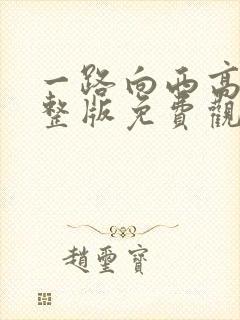 一路向西高
整版免費觀
趙璽寶